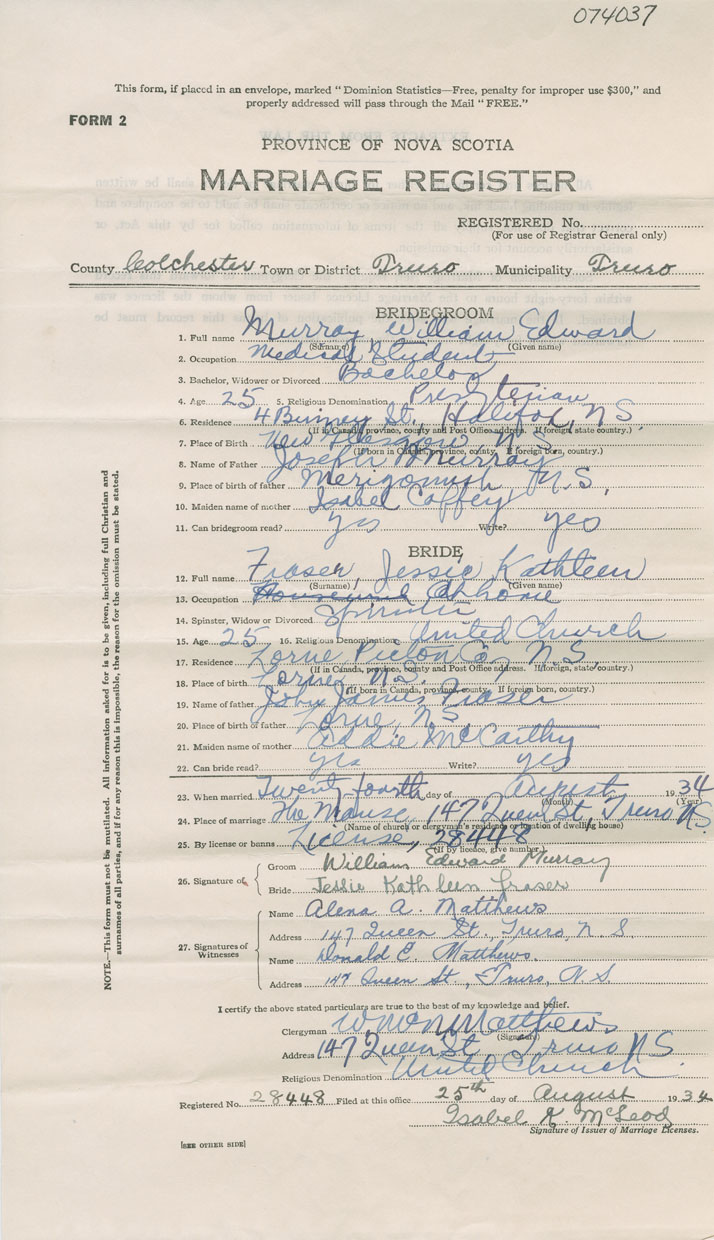 074037
This form, if placed in an envelope, marked "Dominion Statistics—Free, penalty for improper use $300," and
properly addressed will pass through the Mail "FREE."
FORM 2
PROVINCE OF NOVA SCOTIA
MARRIAGE REGISTER
REGISTERED No.
(For use of Registrar General only)
County Colchester Town or District Truro Municipality Truro
BRIDEGROOM
1. Full name Murray William Edward
(Surname) (Given name)
2. Occupation Medical Student
3. Bachelor, Widower or Divorced Bachelor
4. Age 25 5. Religious Denomination Presbyterian
6. Residence 4 Binney St., Halifax, N.S.
(If in Canada, province, county and Post Office address. If foreign, state country.)
7. Place of Birth New Glasgow, N.S.
(If born in Canada, province, county. If foreign born, country.)
8. Name of Father Joseph Murray
9. Place of birth of father Merigomish N.S.
10. Maiden name of mother Isabel Coffey
11. Can bridegroom read? yes Write? yes
BRIDE
12. Full name Fraser, Jessie Kathleen
(Surname) (Given name)
13. Occupation At home
14. Spinster, Widow or Divorced Spinster
15. Age 25 16. Religious Denomination United Church
17. Residence Lorne Pictou Co., N.S.
(If in Canada, province, county and Post Office address. If foreign, state country.)
18. Place of birth Lorne, N.S.
(If born in Canada, province, county. If foreign born, country.)
19. Name of father John James Fraser
20. Place of birth of father Lorne, N.S
21. Maiden name of mother Addie McCarthy
22. Can bride read? yes Write? yes
23. When married Twenty fourth day of August 1934
(Month) (Year)
24. Place of marriage The Manse, 147 Queen St, Truro N.S.
(Name of church or clergyman's residence or location of dwelling house)
25. By license or banns License, 28448
(If by licence, give number.)
26. Signature of Groom William Edward Murray
Bride Jessie Kathleen Fraser
27. Signatures of Witnesses
Name Alena A. Matthews
Address 147 Queen St. Truro, N.S
Name Donald E. Matthews.
Address 147 Queen St., Truro, N.S.
I certify the above stated particulars are true to the best of my knowledge and belief.
Clergyman Matthews
(Signature)
Address 147 Queen St Truro N.S
Religious Denomination United Church
Registered No. 28448 Filed at this office 25th day of August 1934
Isabel K. McLeod
Signature of Issuer of Marriage Licenses.
[SEE OTHER SIDE]
NOTE.—This form must not be mutilated. All information asked for is to be given, including full Christian and
surnames of all parties, and if for any reason this is impossible, the reason for the omission must be stated.